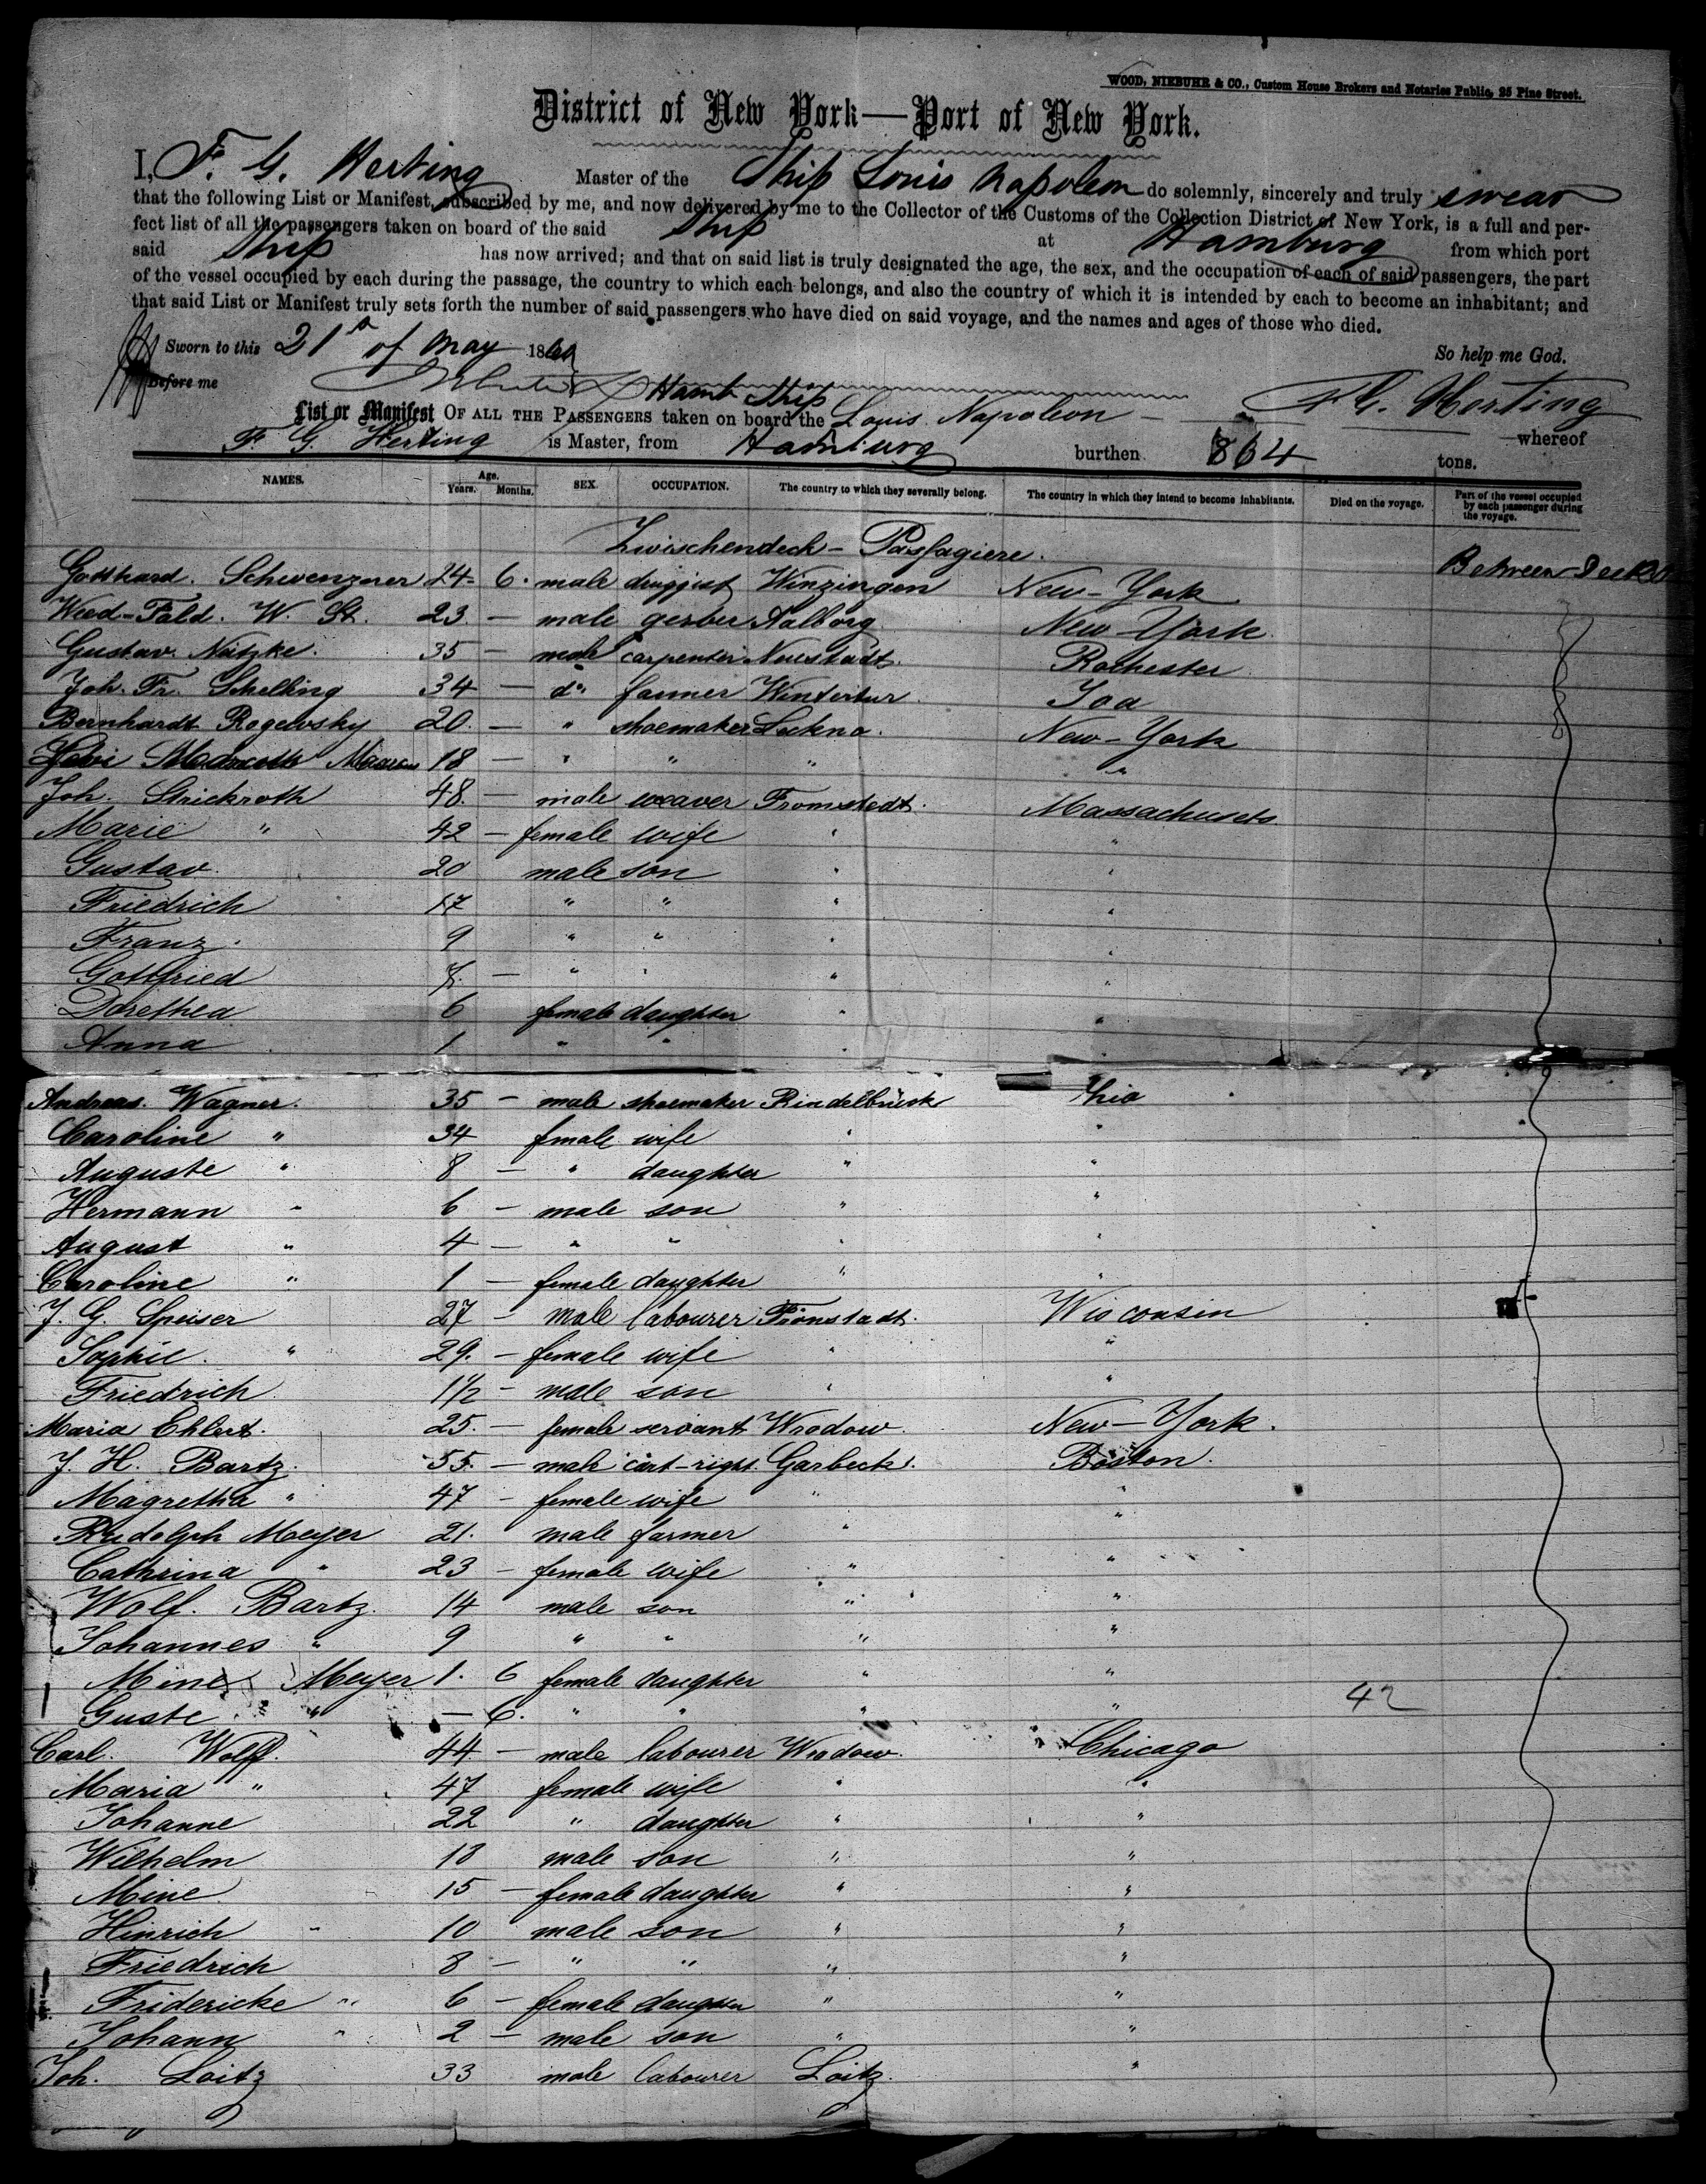 WOOD, NIEBUHR & CO., Custom House Brokers and Notaries Public, 25 Pine Street.
District of New York—Port of New York.
I, F. G. Herting Master of the Ship Louis Napoleon do solemnly, sincerely and truly swear
that the following List or Manifest, subscribed by me, and now delivered by me to the Collector of the Customs of the Collection District of New York, is a full and per-
fect list of all the passengers taken on board of the said Ship at Hamburg from which port
said Ship has now arrived; and that on said list is truly designated the age, the sex, and the occupation of each of said passengers, the part
of the vessel occupied by each during the passage, the country to which each belongs, and also the country of which it is intended by each to become an inhabitant; and
that said List or Manifest truly sets forth the number of said passengers who have died on said voyage, and the names and ages of those who died.
Sworn to this 21st of May 1869 So help me God.
Before me F. G. Herting
Hamb Ship
List or Manifest OF ALL THE PASSENGERS taken on board the Louis Napoleon whereof
F. G. Herting is Master, from Hamburg burthen 864 tons.
NAMES. Age. Years. Months. SEX. OCCUPATION. The country to which they severally belong. The country in which they intend to become inhabitants. Died on the voyage. Part of the vessel occupied by each passenger during the voyage.
Zwischendeck-Passagiere.
Gotthard. Schwenzner 24- 6. male druggist Winzingen New-York Between Decks
Wied-Fald. W. St. 23. — male gerber Aalborg New York.
Gustav. Nätzke. 35 — male carpenter Neustadt. Rochester
Joh. Fr. Schelling 34 — do farmer Wintertur Ioa
Bernhardt Rogewsky 20. — " shoemaker Leckna. New-York
Levi Marcus 18 — " " " "
Joh. Strickroth 48. — male weaver Fromstedt. Massachusets
Marie " 42 — female wife " "
Gustav. 20 male son " "
Friedrich 17 " " " "
Franz. 9 " " " "
Gottfried 7. — " " " "
Dorethea 6 female daughter " "
Anna 1 " " " "
Andreas. Wagner. 35 — male shoemaker Kindelbrück Ohio
Caroline " 34 female wife " "
Auguste " 8 — " daughter " "
Hermann " 6 — male son " "
August " 4 — " " " "
Caroline " 1 — female daughter " "
J. G. Speiser 27 — male labourer Fromstadt. Wisconsin
Sophie. " 29. — female wife " "
Friedrich 1½ — male son " "
Maria Ehlert. 25. — female servant Wrodow. New-York.
J. H. Bartz. 55. — male cart-right. Garbeck. Boston.
Magretha " 47 — female wife " "
Rudolph Meyer 21. male farmer " "
Cathrina " 23 — female wife " "
Wolf. Bartz. 14 male son " "
Johannes " 9 " " " "
Mine Meyer 1. 6 female daughter " "
Guste " — 6. " " " " 42
Carl. Wolff. 44 — male labourer Wrodow. Chicago
Maria " 47 female wife " "
Johanne 22 " daughter " "
Wilhelm 18 male son " "
Mine 15 — female daughter " "
Hinrich " 10 male son " "
Friedrich 8 — " " " "
Fridericke " 6 — female daugther " "
Johann " 2 — male son " "
Joh. Loitz 33 male labourer Loitz. "